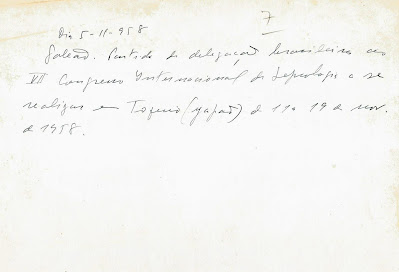 7
Dia 5-11-958
Galeão. Partida da delegação brasileira ao
VII Congresso Internacional de Leprologia a se
realizar em Tóquio (Japão) de 11 a 19 de nov.
de 1958.